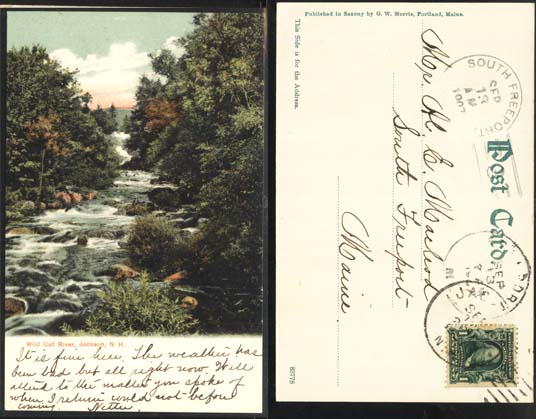 Wild Cat River, Jackson, N. H.
It is fine here. The weather has
been bad but all right now. Will
attend to the matter you spoke of
when I return could not before
coming. Nettie.
Published in Saxony by G. W. Morris, Portland, Maine.
This Side is for the Address.
Post Card.
Mr. H. E. Macleod
South Freeport
Maine
SOUTH FREEPORT
SEP
13
AM
1907
SEP
83378